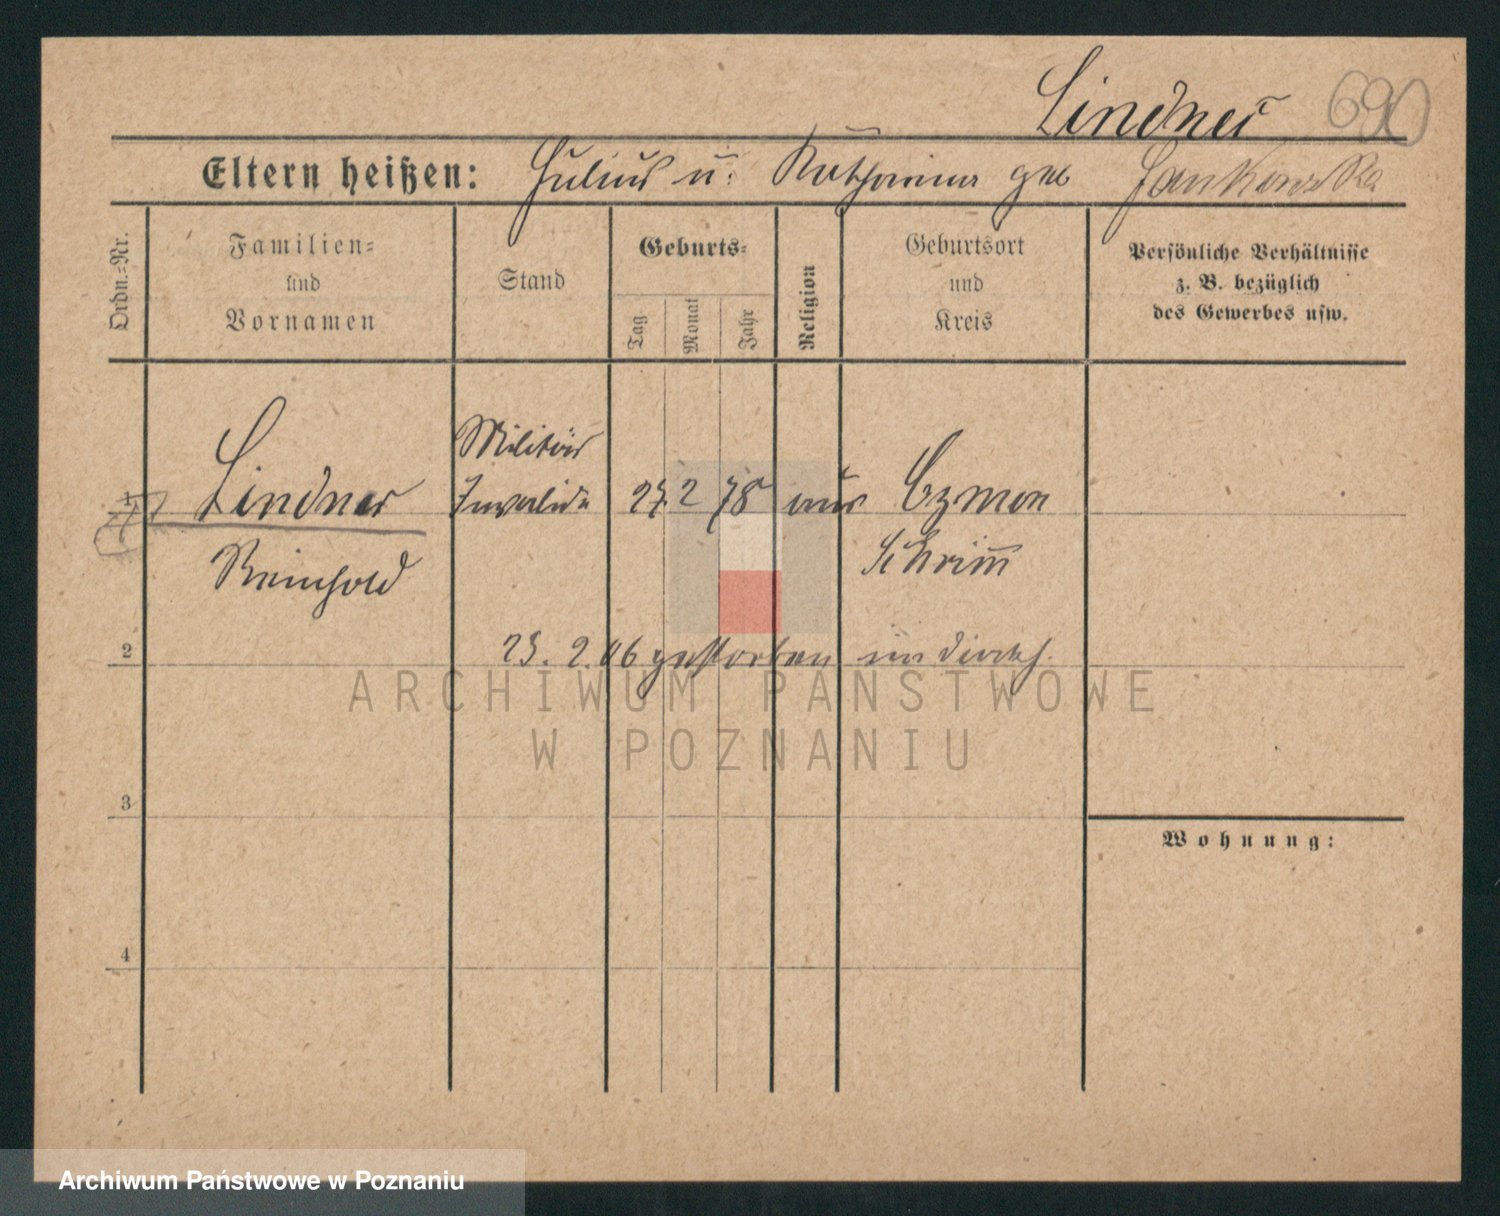 Lindner 690
Eltern heißen: Julius u. Katharina geb Jankowska
Ordn.-Nr.
Familien-
und
Vornamen
Stand
Geburts-
Tag
Monat
Jahr
Religion
Geburtsort
und
Kreis
Persönliche Verhältnisse
z. B. bezüglich
des Gewerbes usw.
Militär
1 Lindner Invalide 27. 2 78 Czmon
Reinhold Schrimm
2 23. 2. 06 gestorben
ARCHIWUM PAŃSTWOWE
W POZNANIU
3
Wohnung:
4
Archiwum Państwowe w Poznaniu